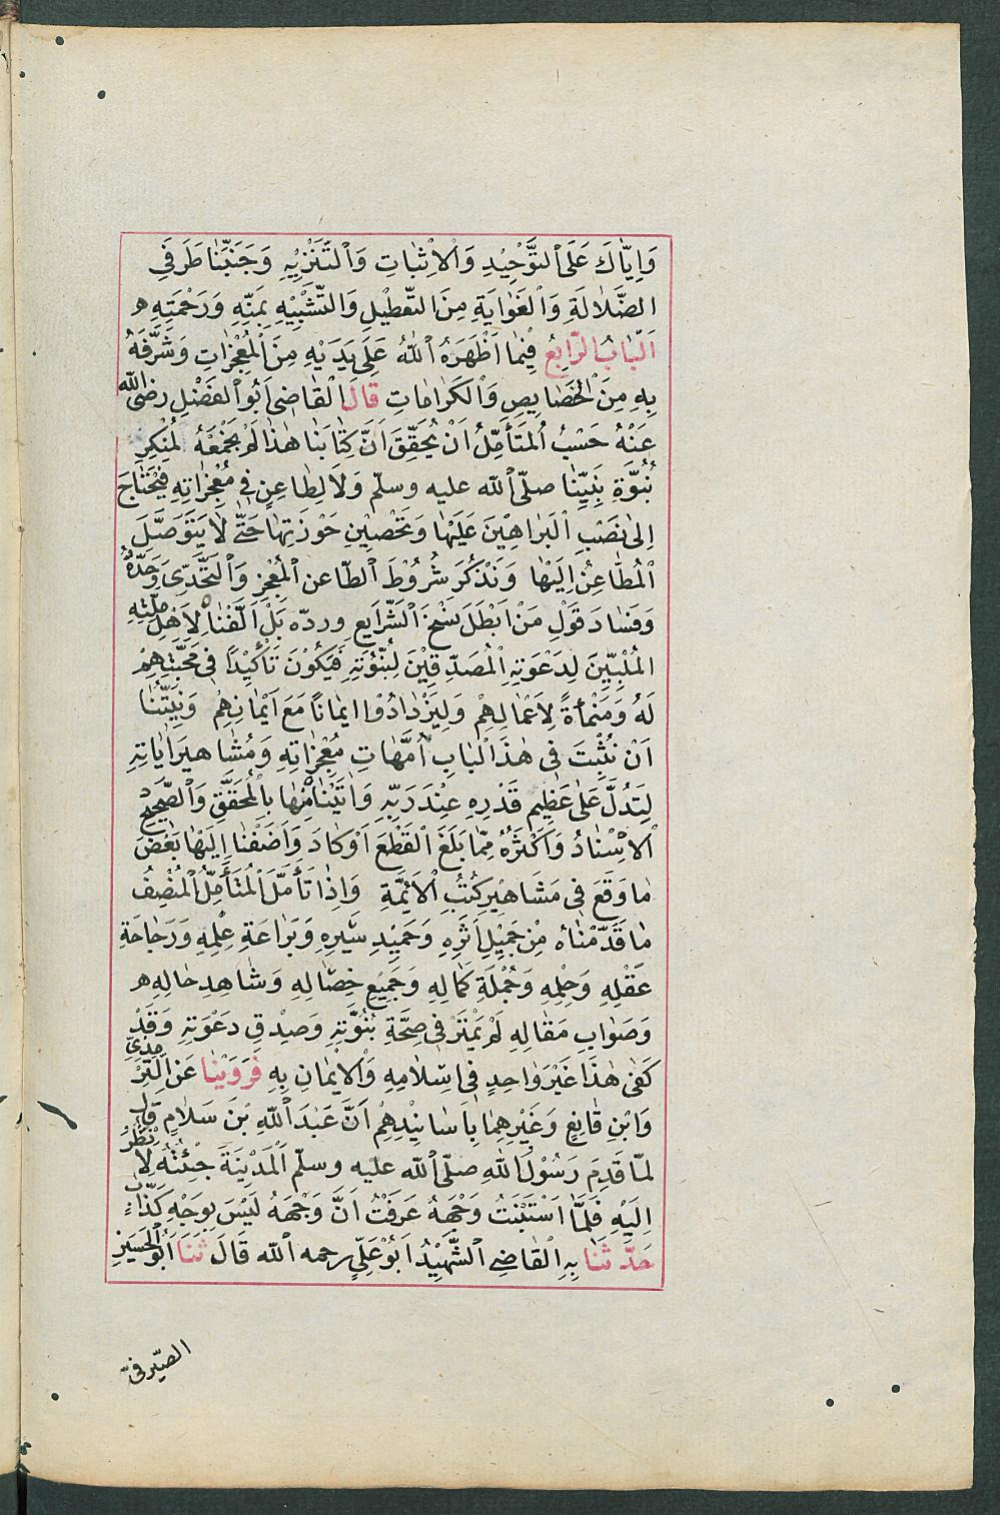 وَاِيَّاكَ عَلَى ٱلتَّوْحِيْدِ وَٱلْاِثْبَاتِ وَٱلتَّنْزِيْهِ وَجَنَّبَنَا طَرَفَيِ
الضَّلَالَةِ وَٱلْغَوَايَةِ مِنَ التَّعْطِيْلِ وَالتَّشْبِيْهِ بِمَنِّهِ وَرَحْمَتِهِ
اَلْبَابُ الرَّابِعُ فِيْمَا اَظْهَرَهُ ٱللّٰهُ عَلَى يَدَيْهِ مِنَ ٱلْمُعْجِزَاتِ وَشَرَّفَهُ
بِهِ مِنَ ٱلْخَصَايِصِ وَٱلْكَرَامَاتِ قَالَ ٱلْقَاضِى اَبُو ٱلْفَضْلِ رضى الله
عَنْهُ حَسْبُ ٱلْمُتَأَمِّلُ اَنْ يُحَقِّقَ اَنَّ كِتَابَنَا هٰذَا لَمْ يَجْمَعْهُ لِمُنْكِرِ
نُبُوَّةِ نَبِيِّنَا صلّى ٱلله عليه وسلّم وَلَا لِطَاعِنٍ فِى مُعْجِزَاتِهِ فَيَحْتَاجَ
اِلَى نَصْبِ ٱلْبَرَاهِيْنَ عَلَيْهَا وَتَحْصِيْنِ حَوْزَتِهَا حَتَّى لَا يَتَوَصَّلَ
ٱلْمُطَاعِنُ اِلَيْهَا وَنَذْكُرَ شُرُوْطَ ٱلطَّاعن ٱلْمُعْجِزِ وَٱلتَّحَدِّى وَحَدَّهُ
وَفَسَادَ قَوْلِ مَنْ اَبْطَلَ نَسْخَ ٱلشَّرَايعِ وردّه بَلْ اَلَّفْنَاهُ لِاَهْلِ مِلَّتِهِ
المُلَبِّيْنَ لِدَعْوَتِهِ ٱلْمُصَدِّقِيْنَ لِنُبُوَّتِهِ فَيَكُوْنَ تَأْكِيْدًا فِى مَحَبَّتِهِمْ
لَهُ وَمَنْمَاةً لِاَعْمَالِهِمْ وَلِيَزْدَادُوْا اِيمَانًا مَعَ اَيْمَانِهِمْ وَنِيَّتُنَا
اَنْ نُثْبِتَ فِى هٰذَا ٱلْبَابِ اُمَّهَاتِ مُعْجِزَاتِهِ وَمُشَاهِيرَ اٰيَاتِهِ
لِتَدُلَّ عَلَى عَظِيمِ قَدْرِهِ عِنْدَ رَبِّهِ وَاَتَيْنَا مِنْهَا بِٱلْمُحَقَّقِ وَٱلصَّحِيْحِ
ٱلْاِسْنَادُ وَاَكْثَرُهُ مِمَّا بَلَغَ ٱلْقَطْعَ اَوْ كَادَ وَاَضَفْنَا اِلَيْهَا بَعْضَ
مَا وَقَعَ فِى مَشَاهِيْرِ كُتُبِ ٱلْاَئِمَّةِ وَاِذَا تَأَمَّلَ ٱلْمُتَأَمِّلُ ٱلْمُنْصِفُ
مَا قَدَّمْنَاهُ مِنْ جَمِيْلِ اَثَرِهِ وَحَمِيْدِ سَيْرِهِ وَبَرَاعَةِ عِلْمِهِ وَرَجَاحَةِ
عَقْلِهِ وَحِلْمِهِ وَجُمْلَةِ كَمَالِهِ وَجَمِيْعِ خِصَالِهِ وَشَاهِدِ حَالِهِ
وَصَوَابِ مَقَالِهِ لَمْ يَمْتَرِ فِى صِحَّةِ نُبُوَّتِهِ وَصِدْقِ دَعْوَتِهِ وَقَدْ
كَفَى هٰذَا غَيْرَ وَاحِدٍ فِى اِسْلَامِهِ وَٱلْاِيْمَانِ بِهِ فَرَوَيْنَا عَنِ التِّرْمِذِىِّ
وَابْنِ قَانِعٍ وَغَيْرِهِمَا بِاَسَانِيْدِهِمْ اَنَّ عَبْدَ ٱللّٰهِ بْنَ سَلَامٍ قال
لمّا قَدِمَ رَسُوْلُ اللّٰهِ صلّى ٱلله عليه وسلّم ٱلْمَدِيْنَةَ جِئْتُهُ لِاَنْظُرَ
اِلَيْهِ فَلَمَّا اسْتَبَنْتُ وَجْهَهُ عَرَفْتُ اَنَّ وَجْهَهُ لَيْسَ بِوَجْهِ كَذَّابٍ
حَدَّثَنَا بِهِ ٱلْقَاضِى ٱلشَّهِيْدُ اَبُوْ عَلِىٍّ رحمه ٱلله قَالَ ثَنَا اَبُو الْحُسَيْنِ
الصّيرفىّ